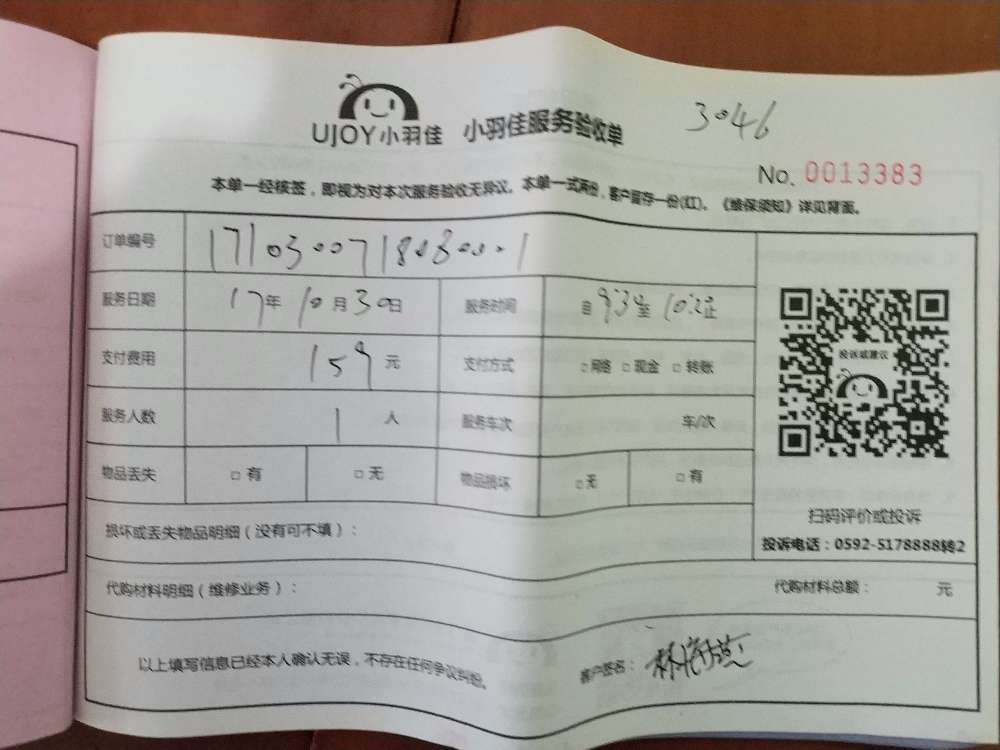 UJOY小羽佳 小羽佳服务验收单 3046
No. 0013383
本单一经核签，即视为对本次服务验收无异议。本单一式两份，客户留存一份(红)。《维保须知》详见背面。
订单编号
服务日期 17年 10月 30日 服务时间 自 9:30 至 10:20 止
支付费用 159 元 支付方式 □网络 □现金 □转账
投诉或建议
服务人数 1 人 服务车次 车/次
物品丢失 □有 □无 物品损坏 □无 □有
扫码评价或投诉
损坏或丢失物品明细（没有可不填）：
投诉电话：0592-5178888转2
代购材料明细（维修业务）： 代购材料总额： 元
以上填写信息已经本人确认无误，不存在任何争议纠纷。 客户签名：